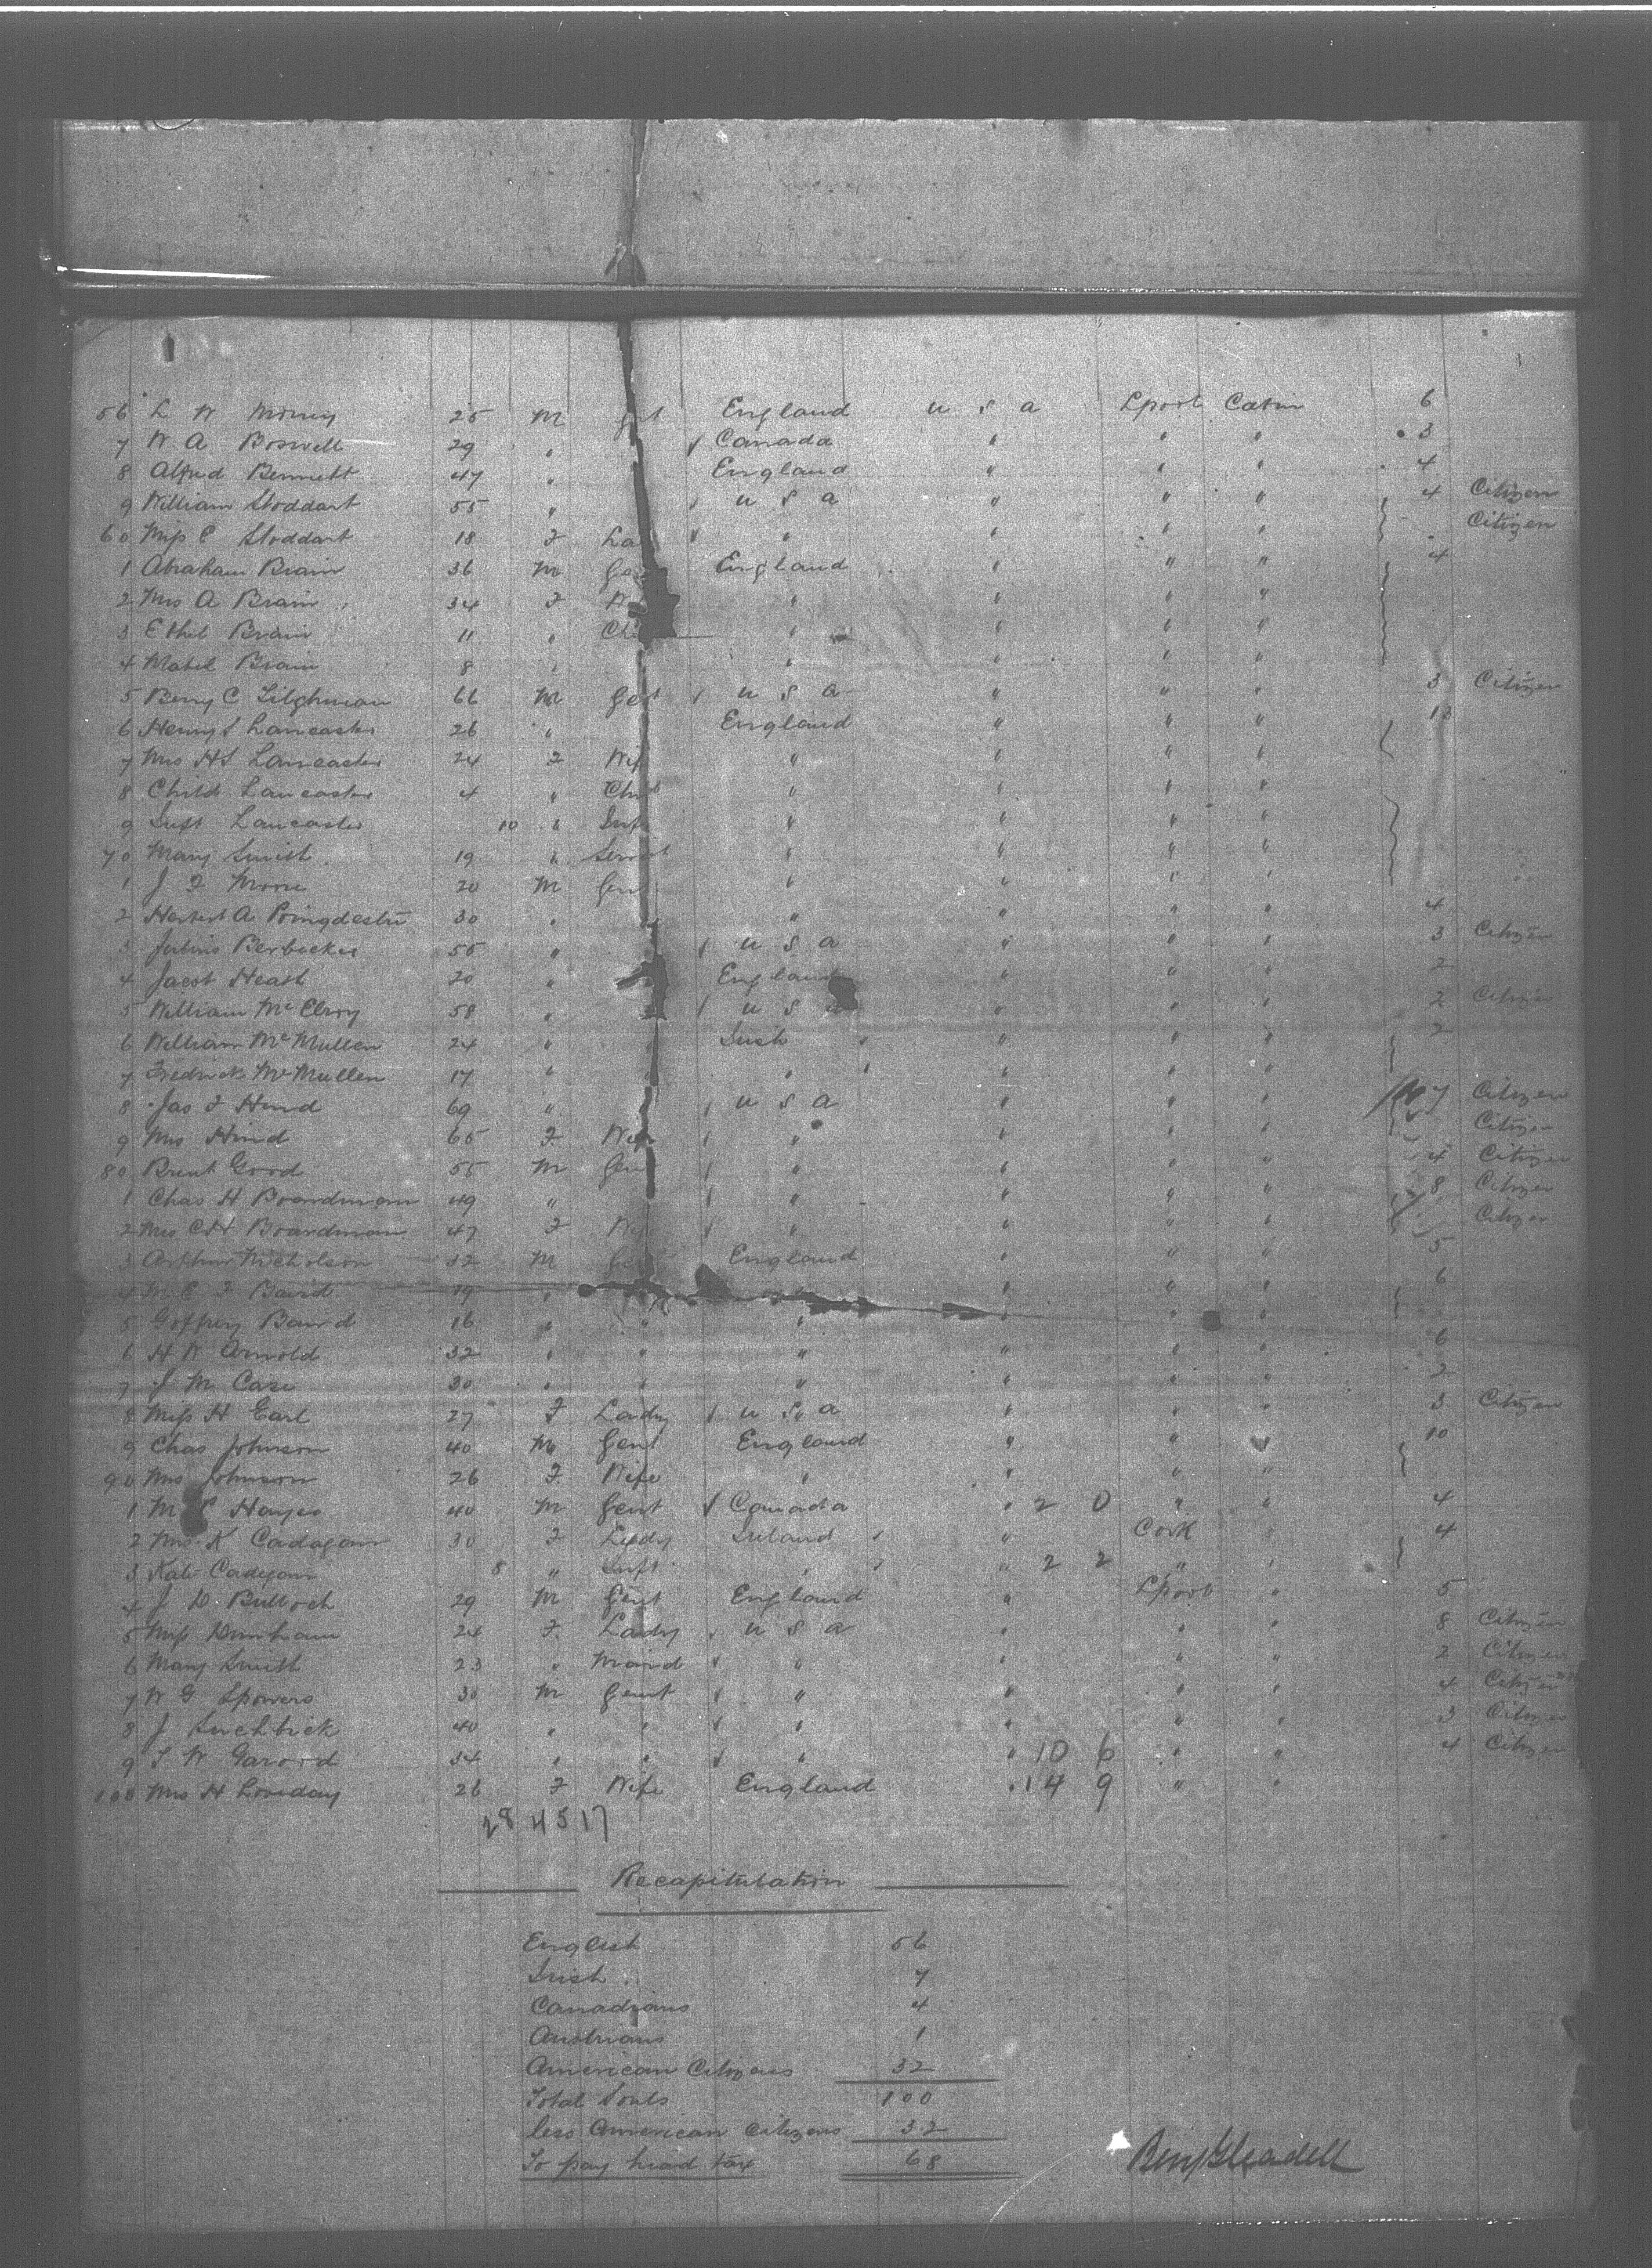 56 L W Money 25 M England u s a Lpool Cabin 6
7 W A Boswell 29 " Canada " " " 3
8 Alfred Bennett 47 " England " " " 4
9 William Stoddart 55 " u s a " " " 4 Citizen
60 Miss C Stoddart 18 F La " " " " Citizen
1 Abraham Brain 36 M Ge England " " " 4
2 Mrs A Brain 34 F W " " " "
3 Ethel Brain 11 " Chi " " " "
4 Mabel Brain 8 " " " " "
5 Benj C Tilghman 66 M Gent u s a " " " 3 Citizen
6 Henry S Lancaster 26 " England " " " 13
7 Mrs HS Lancaster 24 F Wif " " " "
8 Child Lancaster 4 " Child " " " "
9 Inft Lancaster 10 " Inf " " " "
70 Mary Smith 19 " Servant " " " "
1 J F Moore 20 M Gent " " " "
2 Herbert A Poingdestre 30 " " " " " 4
3 Julius Berbecker 55 " u s a " " " 3 Citizen
4 Jacob Heath 20 " England " " " 2
5 William McElroy 58 " u s a " " " 2 Citizen
6 William McMullen 24 " Irish " " " 2
7 Fredrick McMullen 17 " " " " "
8 Jas F Hind 69 " u s a " " " 7 Citizen
9 Mrs Hind 65 F Wife " " " " Citizen
80 Brent Good 55 M Gent " " " " 4 Citizen
1 Chas H Boardman 49 " " " " " 8 Citizen
2 Mrs CH Boardman 47 F Wife " " " " Citizen
3 Arthur Nicholson 32 M Ge England " " " 5
4 M E F Baird 19 " " " " 6
5 Goffrey Baird 16 " " " " " "
6 H W Arnold 32 " " " " " " 6
7 J M Case 30 " " " " " " 2
8 Miss H Earl 27 F Lady u s a " " " 3 Citizen
9 Chas Johnson 40 M Gent England " " " 10
90 Mrs Johnson 26 F Wife " " " "
1 M P Hayes 40 M Gent Canada " 2 0 " " 4
2 Mrs K Cadagan 30 F Lady Ireland " Cork " 4
3 Kate Cadegan 8 " Inft " " 2 2 " "
4 J D Bulloch 29 M Gent England " Lpool " 5
5 Miss Dunham 24 F Lady u s a " " " 8 Citizen
6 Mary Smith 23 " Maid " " " " 2 Citizen
7 W G Spowers 30 M Gent " " " " 4 Citizen
8 J Luchbick 40 " " " " " " 3 Citizen
9 T W Garood 34 " " " " 10 6 " " 4 Citizen
100 Mrs H Loveday 26 F Wife England " 14 9 " "
28 4517
Recapitulation
English 56
Irish 7
Canadians 4
Austrians 1
American Citizens 32
Total Souls 100
less American Citizens 32
To pay head tax 68
Benj Gleadell